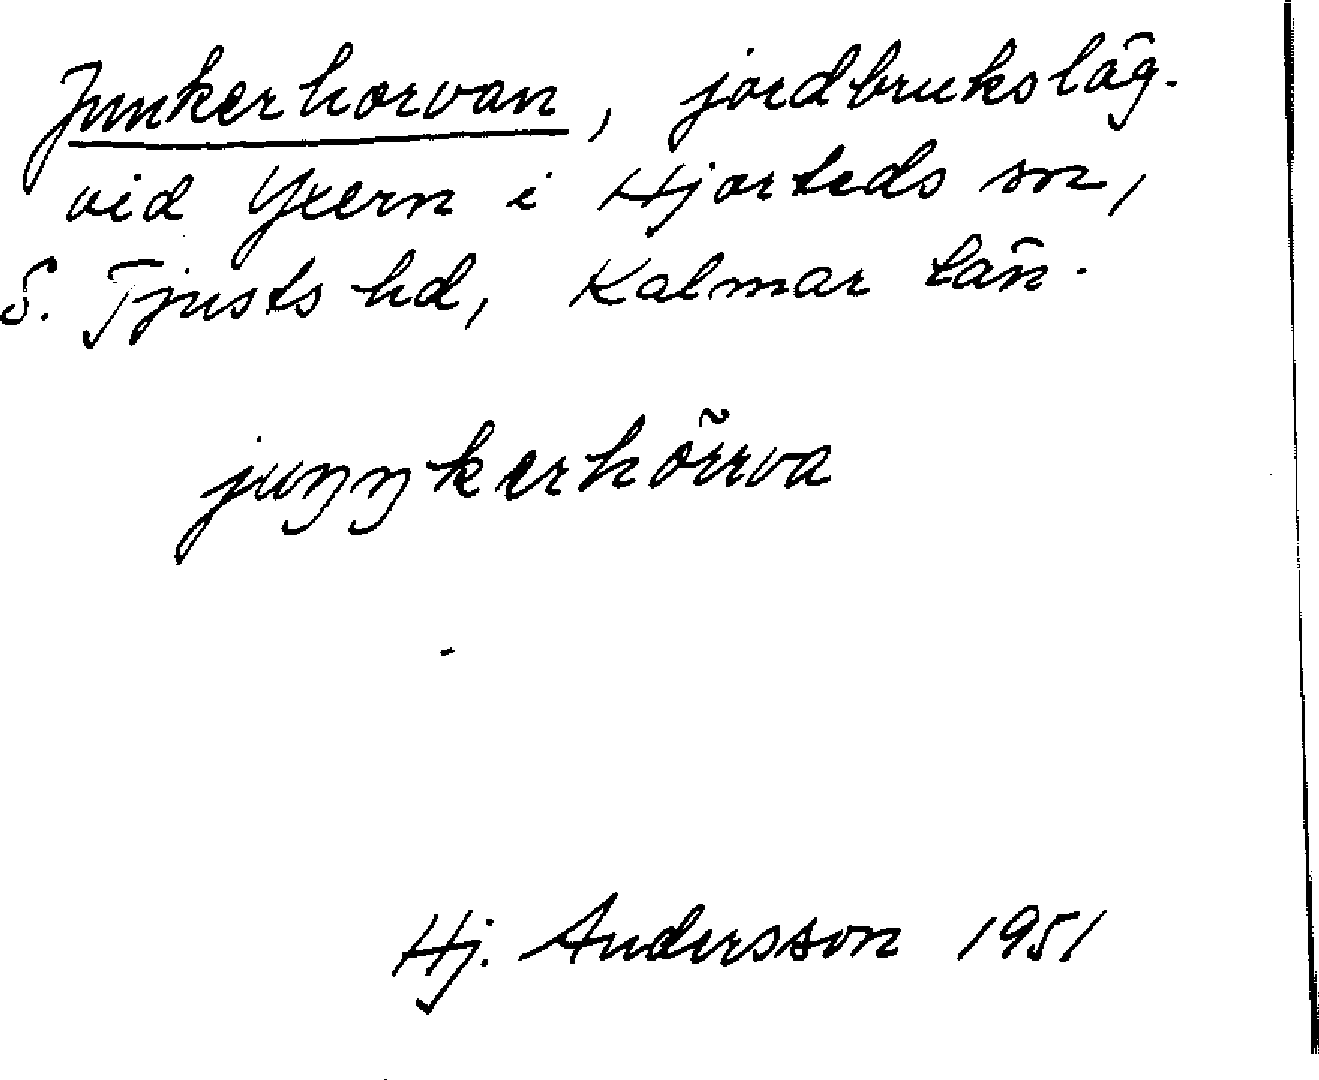 Junkerhorvan, jordbruksläg.
vid Yxern i Hjorteds sn,
S. Tjusts hd, Kalmar län.
juŋŋkerhõrrva
Hj. Andersson 1951